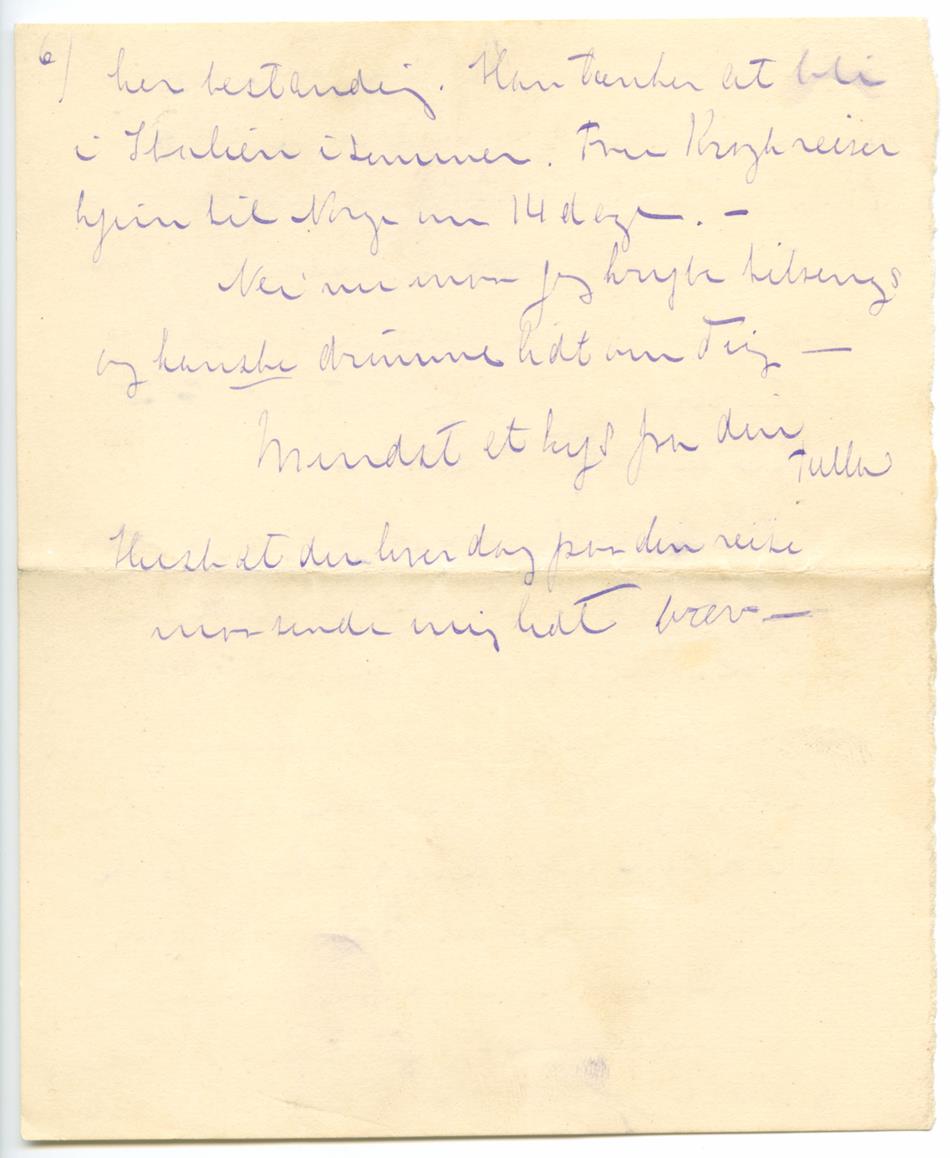 6)
her bestandig. Han tænker at bli
i Italien isommer. Fru Krogh reiser
hjem til Norge om 14 dage. –
Nei nu maa jeg krybe tilsengs
og kanske drømme lidt om Dig —
Mindst et kys fra din
Tulla
Husk at du hver dag paa din reise
maa sende mig lidt brev —